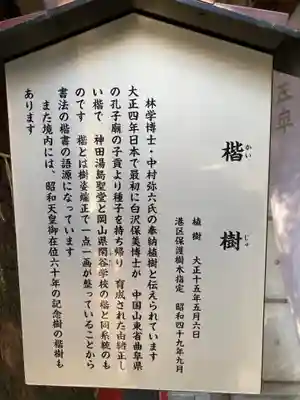 楷樹
かい じゅ
植樹 大正十五年五月六日
港区保護樹木指定 昭和四十九年九月
林学博士・中村弥六氏の奉納植樹と伝えられています
大正四年日本で最初に白沢保美博士が 中国山東省曲阜県
の孔子廟の子貢より種子を持ち帰り 育成された由緒正し
い楷で 神田湯島聖堂と岡山県閑谷学校の楷と同系統のも
のです 楷とは樹姿端正で一点一画が整っていることから
書法の楷書の語源になっています
また境内には、昭和天皇御在位六十年の記念樹の楷樹も
あります